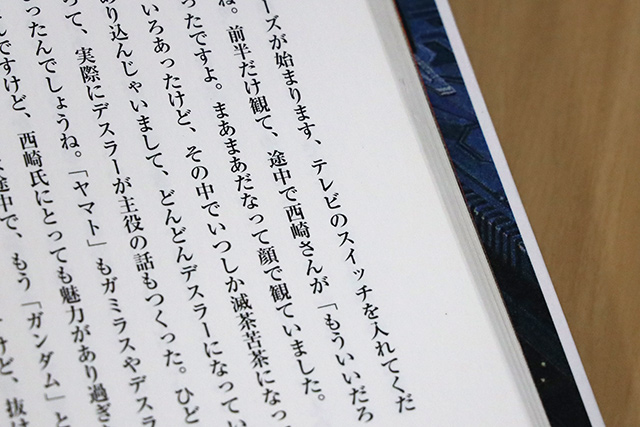 ーズが始まります、テレビのスイッチを入れてくだ
ね。前半だけ観て、途中で西崎さんが「もういいだろ
ったですよ。まあまあだなって顔で観ていました。
いろあったけど、その中でいつしか滅茶苦茶になっ
あり込んじゃいまして、どんどんデスラーになってい
って、実際にデスラーが主役の話もつくった。ひど
ったんでしょうね。「ヤマト」もガミラスやデスラ
んですけど、西崎氏にとっても魅力があり過ぎ
途中で、もう「ガンダム」と
けど、抜け